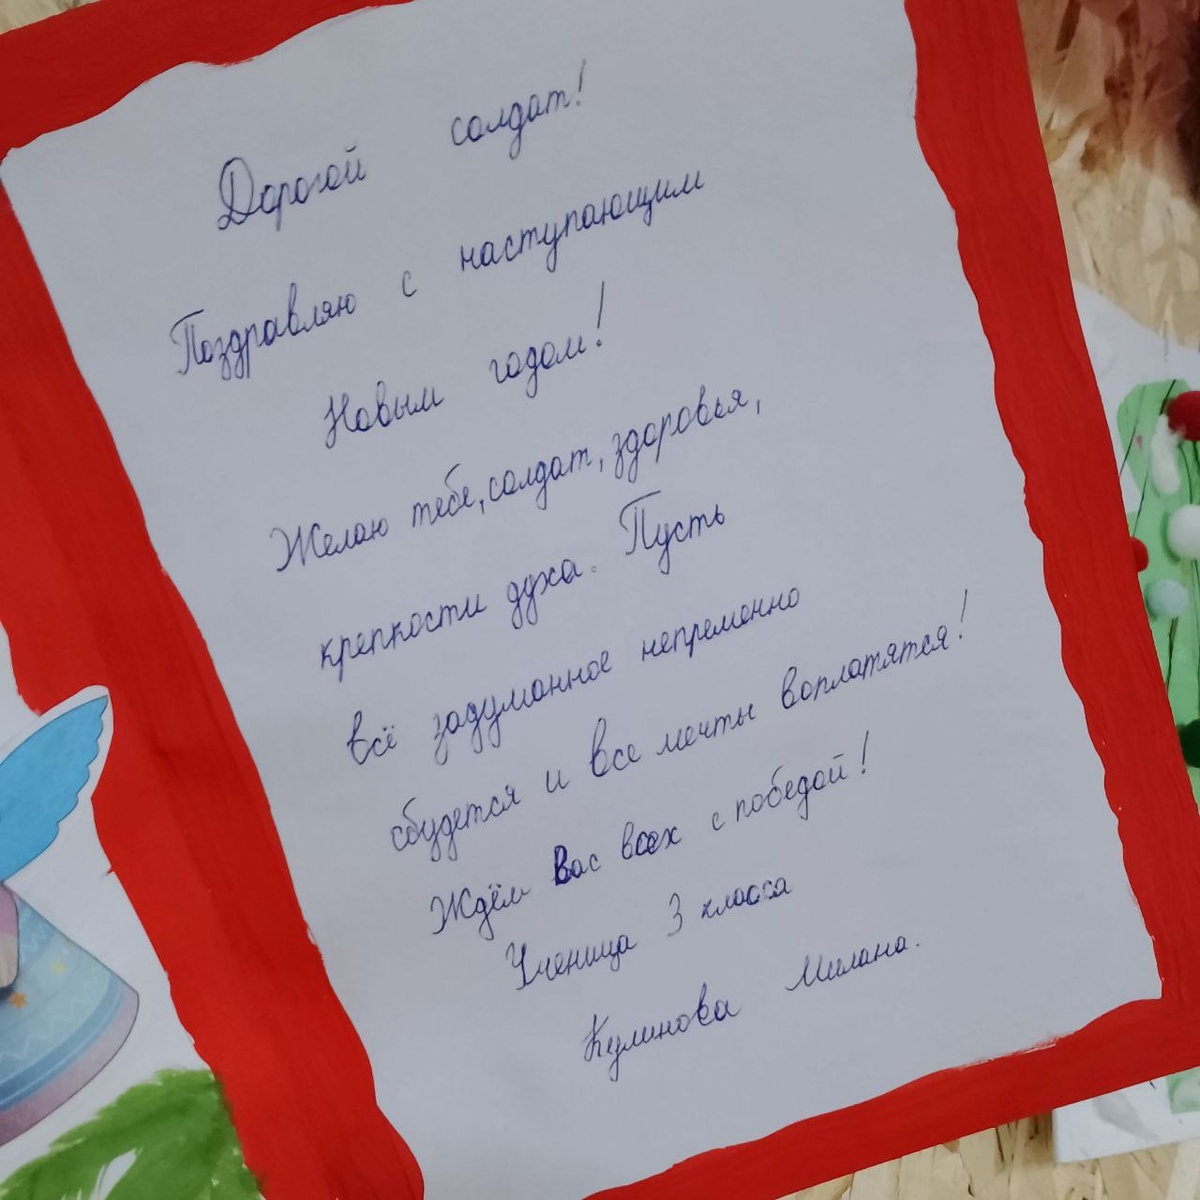 Дорогой солдат!
Поздравляю с наступающим
Новым годом!
Желаю тебе, солдат, здоровья,
крепкости духа. Пусть
всё задуманное непременно
сбудется и все мечты воплатятся!
Ждём Вас всех с победой!
Ученица 3 класса
Кулинова Милана.